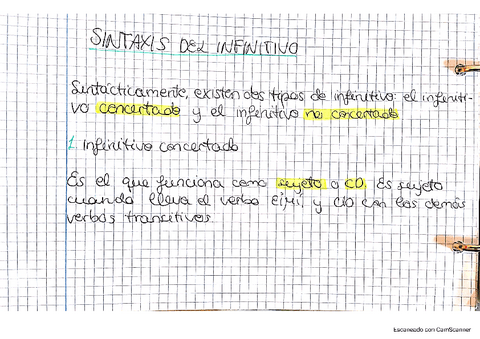 SINTAXIS DEL INFINITIVO
Sintácticamente, existen dos tipos de infinitivo: el infiniti-
vo concertado y el infinitivo no concertado
1. Infinitivo concertado
Es el que funciona como sujeto o CD. Es sujeto
cuando lleva el verbo εἰμί y CD con los demás
verbos transitivos.
Escaneado con CamScanner